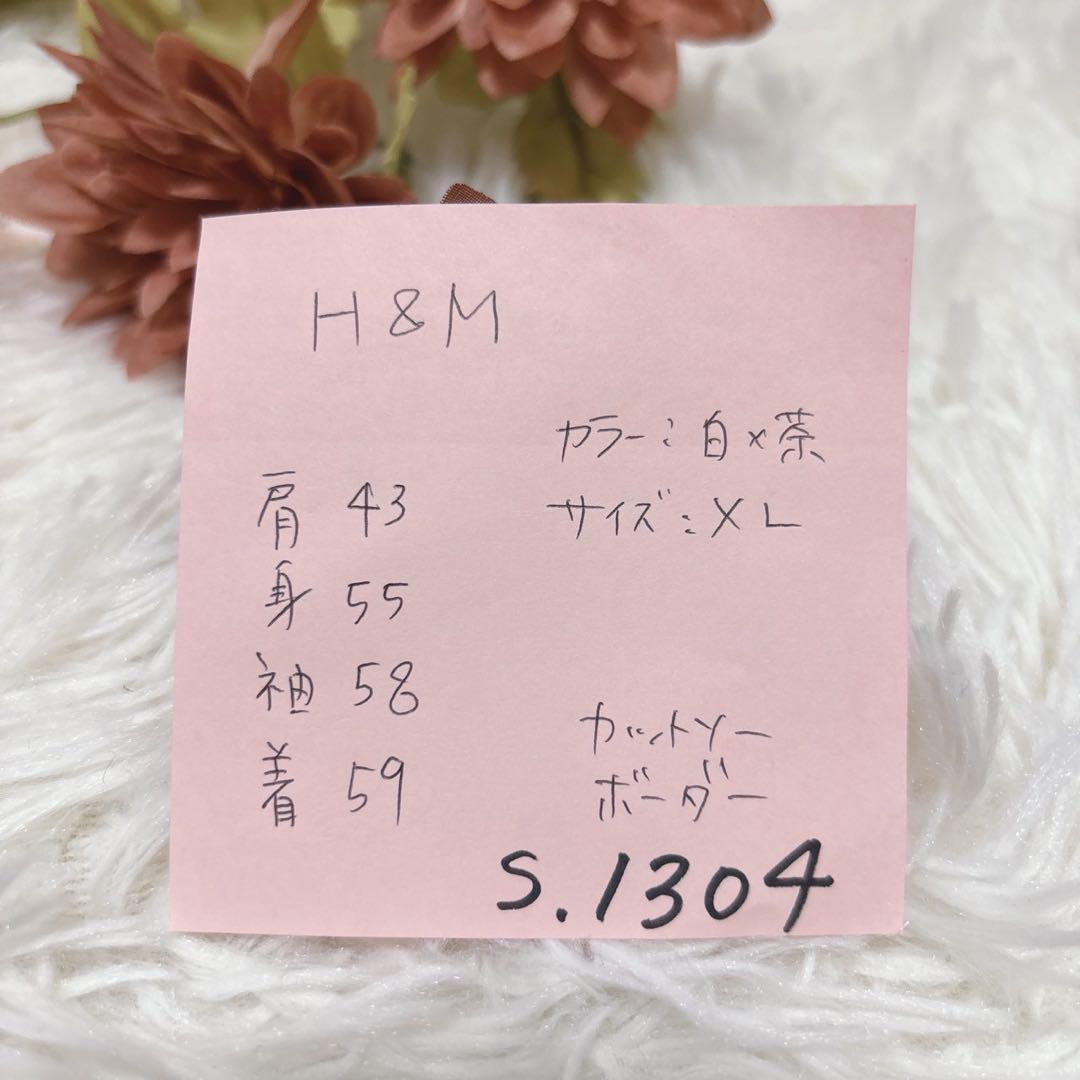 H&M
カラー:白×茶
サイズ:XL
肩 43
身 55
袖 58
着 59
カットソー
ボーダー
S.1304